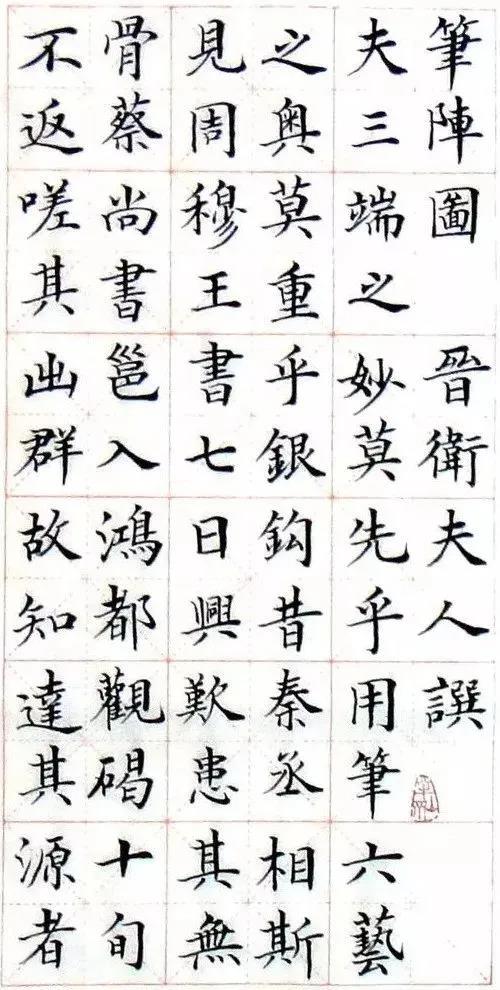 筆陣圖 晉衛夫人譔
夫三端之妙莫先乎用筆六藝
之奧莫重乎銀鈎昔秦丞相斯
見周穆王書七日興歎患其無
骨蔡尚書邕入鴻都觀碣十旬
不返嗟其出群故知達其源者